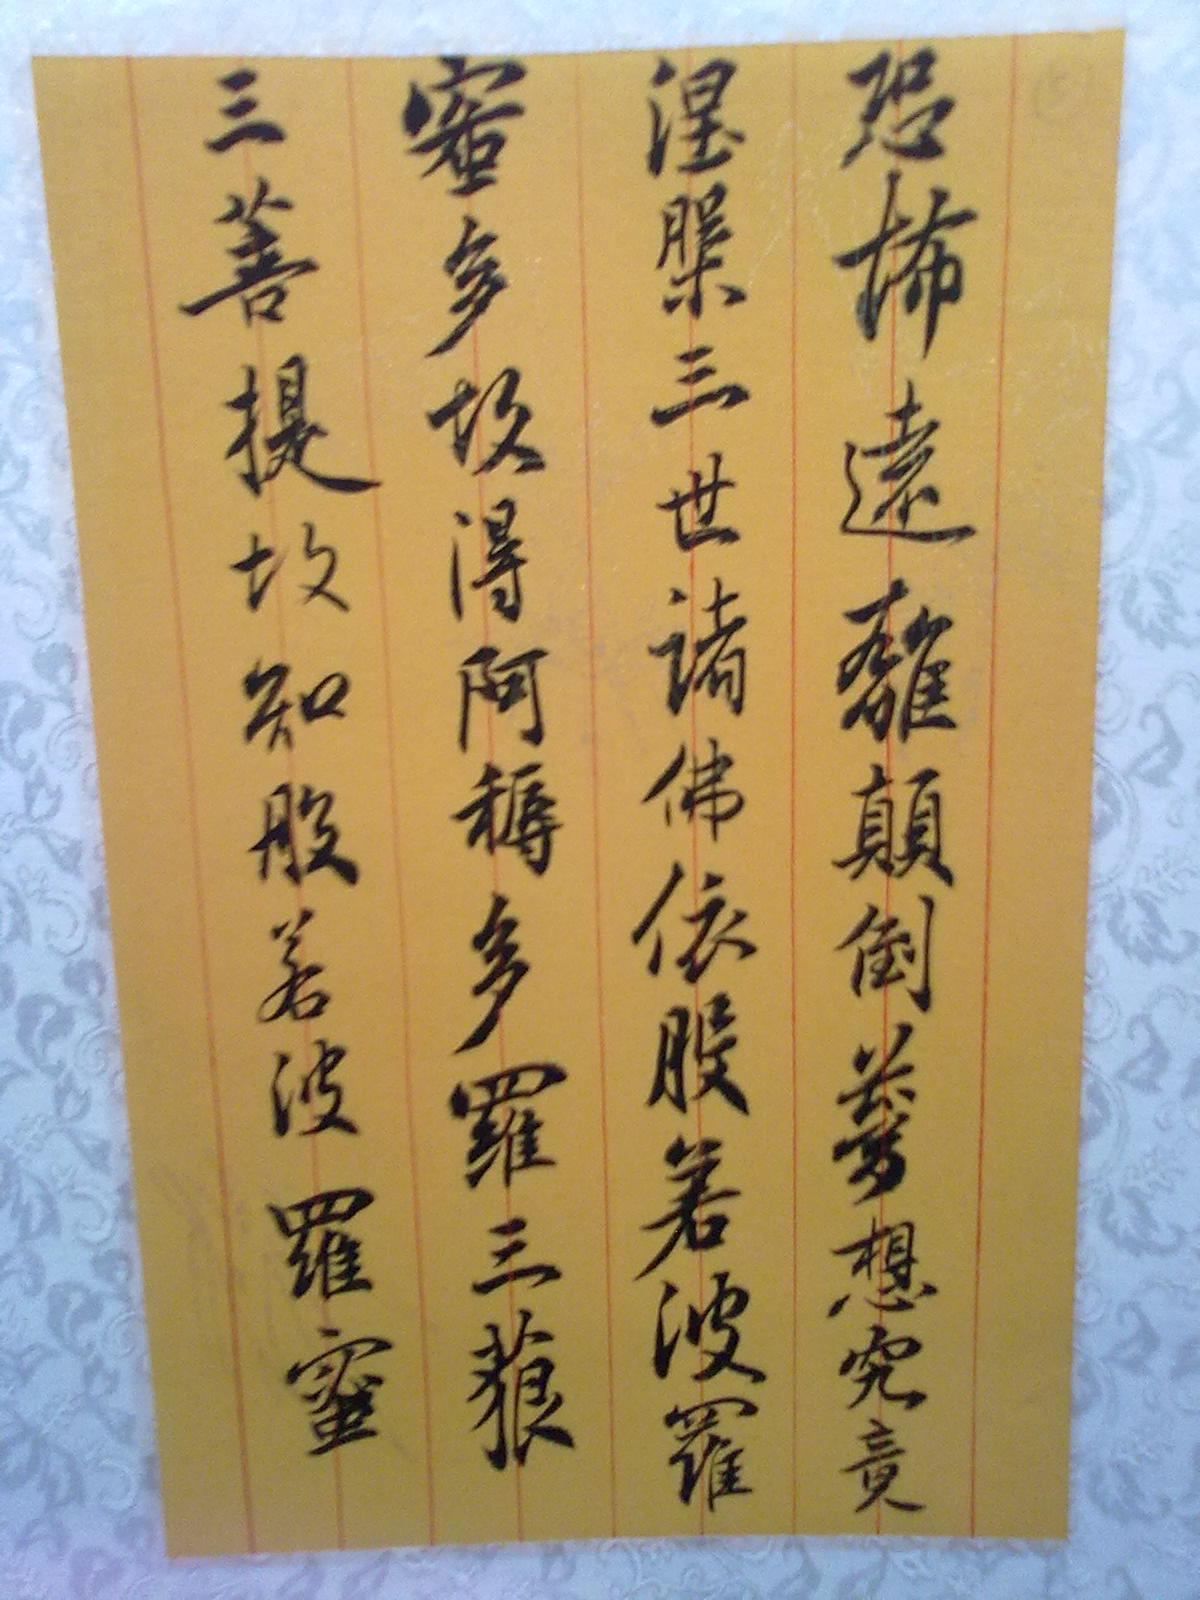 恐怖遠離顛倒夢想究竟
涅槃三世諸佛依般若波羅
蜜多故得阿耨多羅三藐
三菩提故知般若波羅蜜